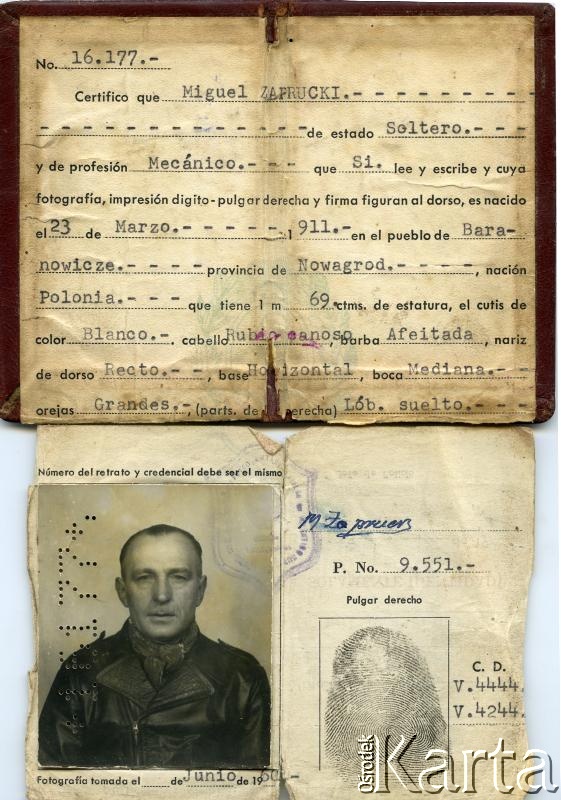 No. 16.177.-
Certifico que Miguel ZAPRUCKI.- - - - - - - - - -
- - - - - - - - - - - - - - de estado Soltero.- - -
y de profesión Mecánico.- - - que Si. lee y escribe y cuya
fotografía, impresión digito-pulgar derecha y firma figuran al dorso, es nacido
el 23 de Marzo.- - - - - 1 911.- en el pueblo de Bara-
nowicze.- - - - provincia de Nowagrod.- - - -, nación
Polonia.- - - que tiene 1 m 69. ctms. de estatura, el cutis de
color Blanco.-. cabello Rubio canoso, barba Afeitada, nariz
de dorso Recto.- -, base Horizontal, boca Mediana.- -
orejas Grandes.-, (parts. de derecha) Lób. suelto.- - -
Número del retrato y credencial debe ser el mismo
P. No. 9.551.-
Pulgar derecho
C. D.
V.4444.
V.4244.
Fotografía tomada el de Junio de 19 60.-
ośrodek Karta